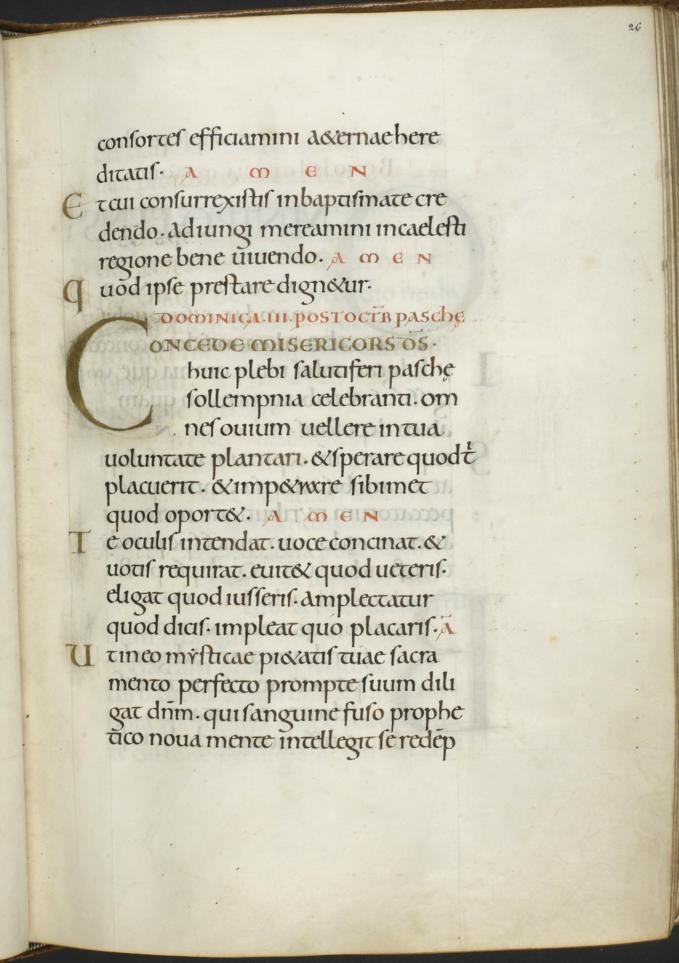 26
consortes efficiamini a&ernae here
ditatis· A M E N
Et cui consurrexistis in baptismate cre
dendo· adiungi mereamini in caelesti
regione bene uiuendo· A M E N
Quod ipse prestare dign&ur·
DOMINICA·III·POST OCTB̄ PASCHĘ
CONCEDE MISERICORS D̄S·
huic plebi salutiferi paschę
sollempnia celebranti· om
nes ouium uellere in tua
uoluntate plantari· & sperare quod t̄
placuerit· & imp&rare sibimet
quod oport&· A M E N
Te oculis intendat· uoce concinat· &
uotis requirat· euit& quod ueteris·
eligat quod iusseris· amplectatur
quod dicis· impleat quo placaris· Ā
Ut in eo mẏsticae pi&atis tuae sacra
mento perfecto prompte suum dili
gat dn̄m· qui sanguine fuso prophe
tico noua mente intellegit se redēp